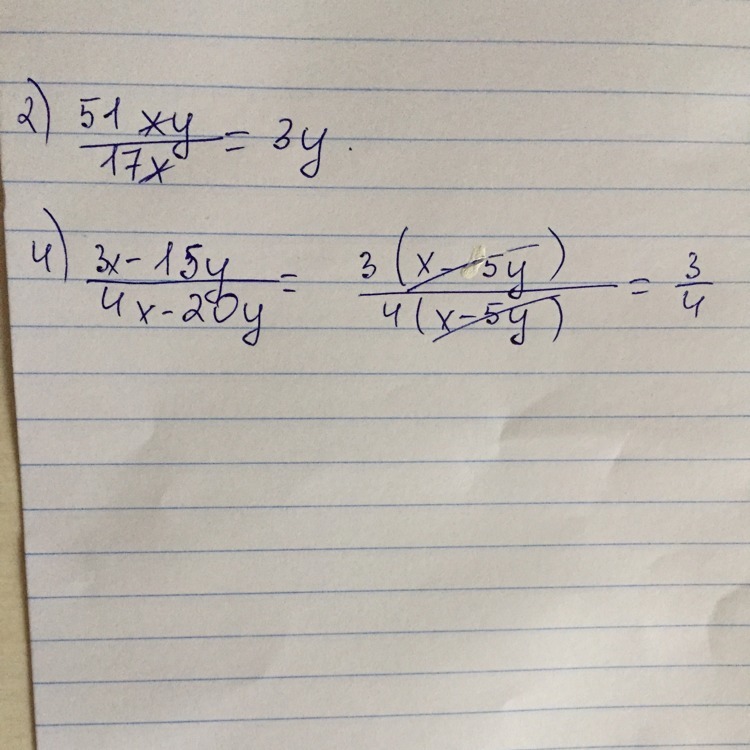 2) 51xy/17x = 3y.
4) 3x-15y/4x-20y = 3(x-5y)/4(x-5y) = 3/4